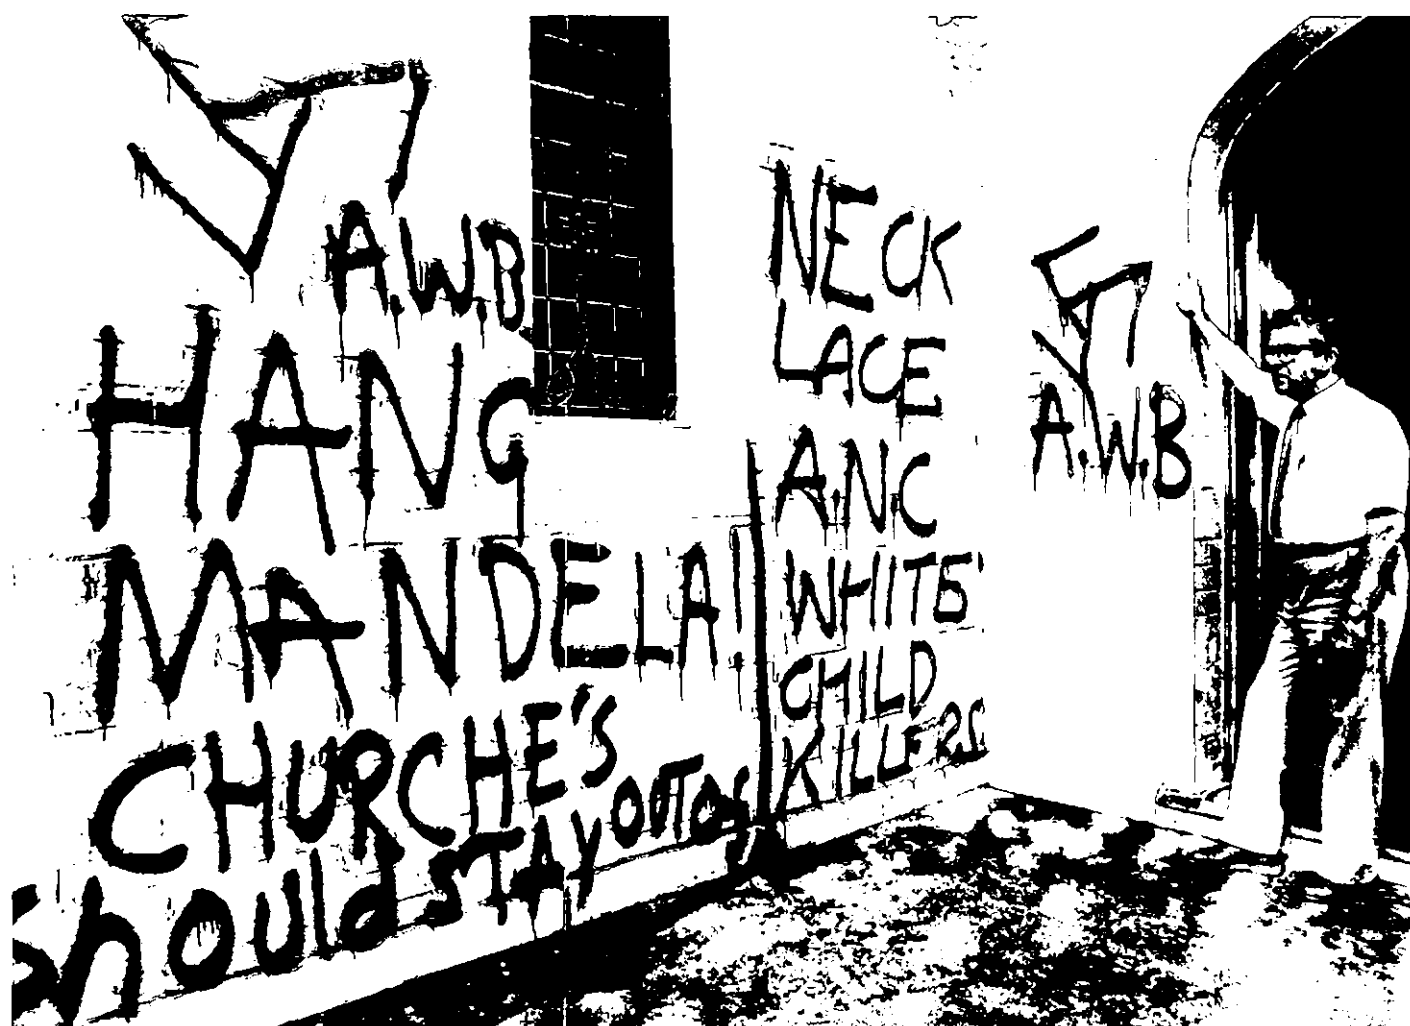 A.W.B
HANG
MANDELA!
CHURCHE'S
Should STAY OUT OF
NECK
LACE
A.N.C
WHITE
CHILD
KILLERS
A.W.B